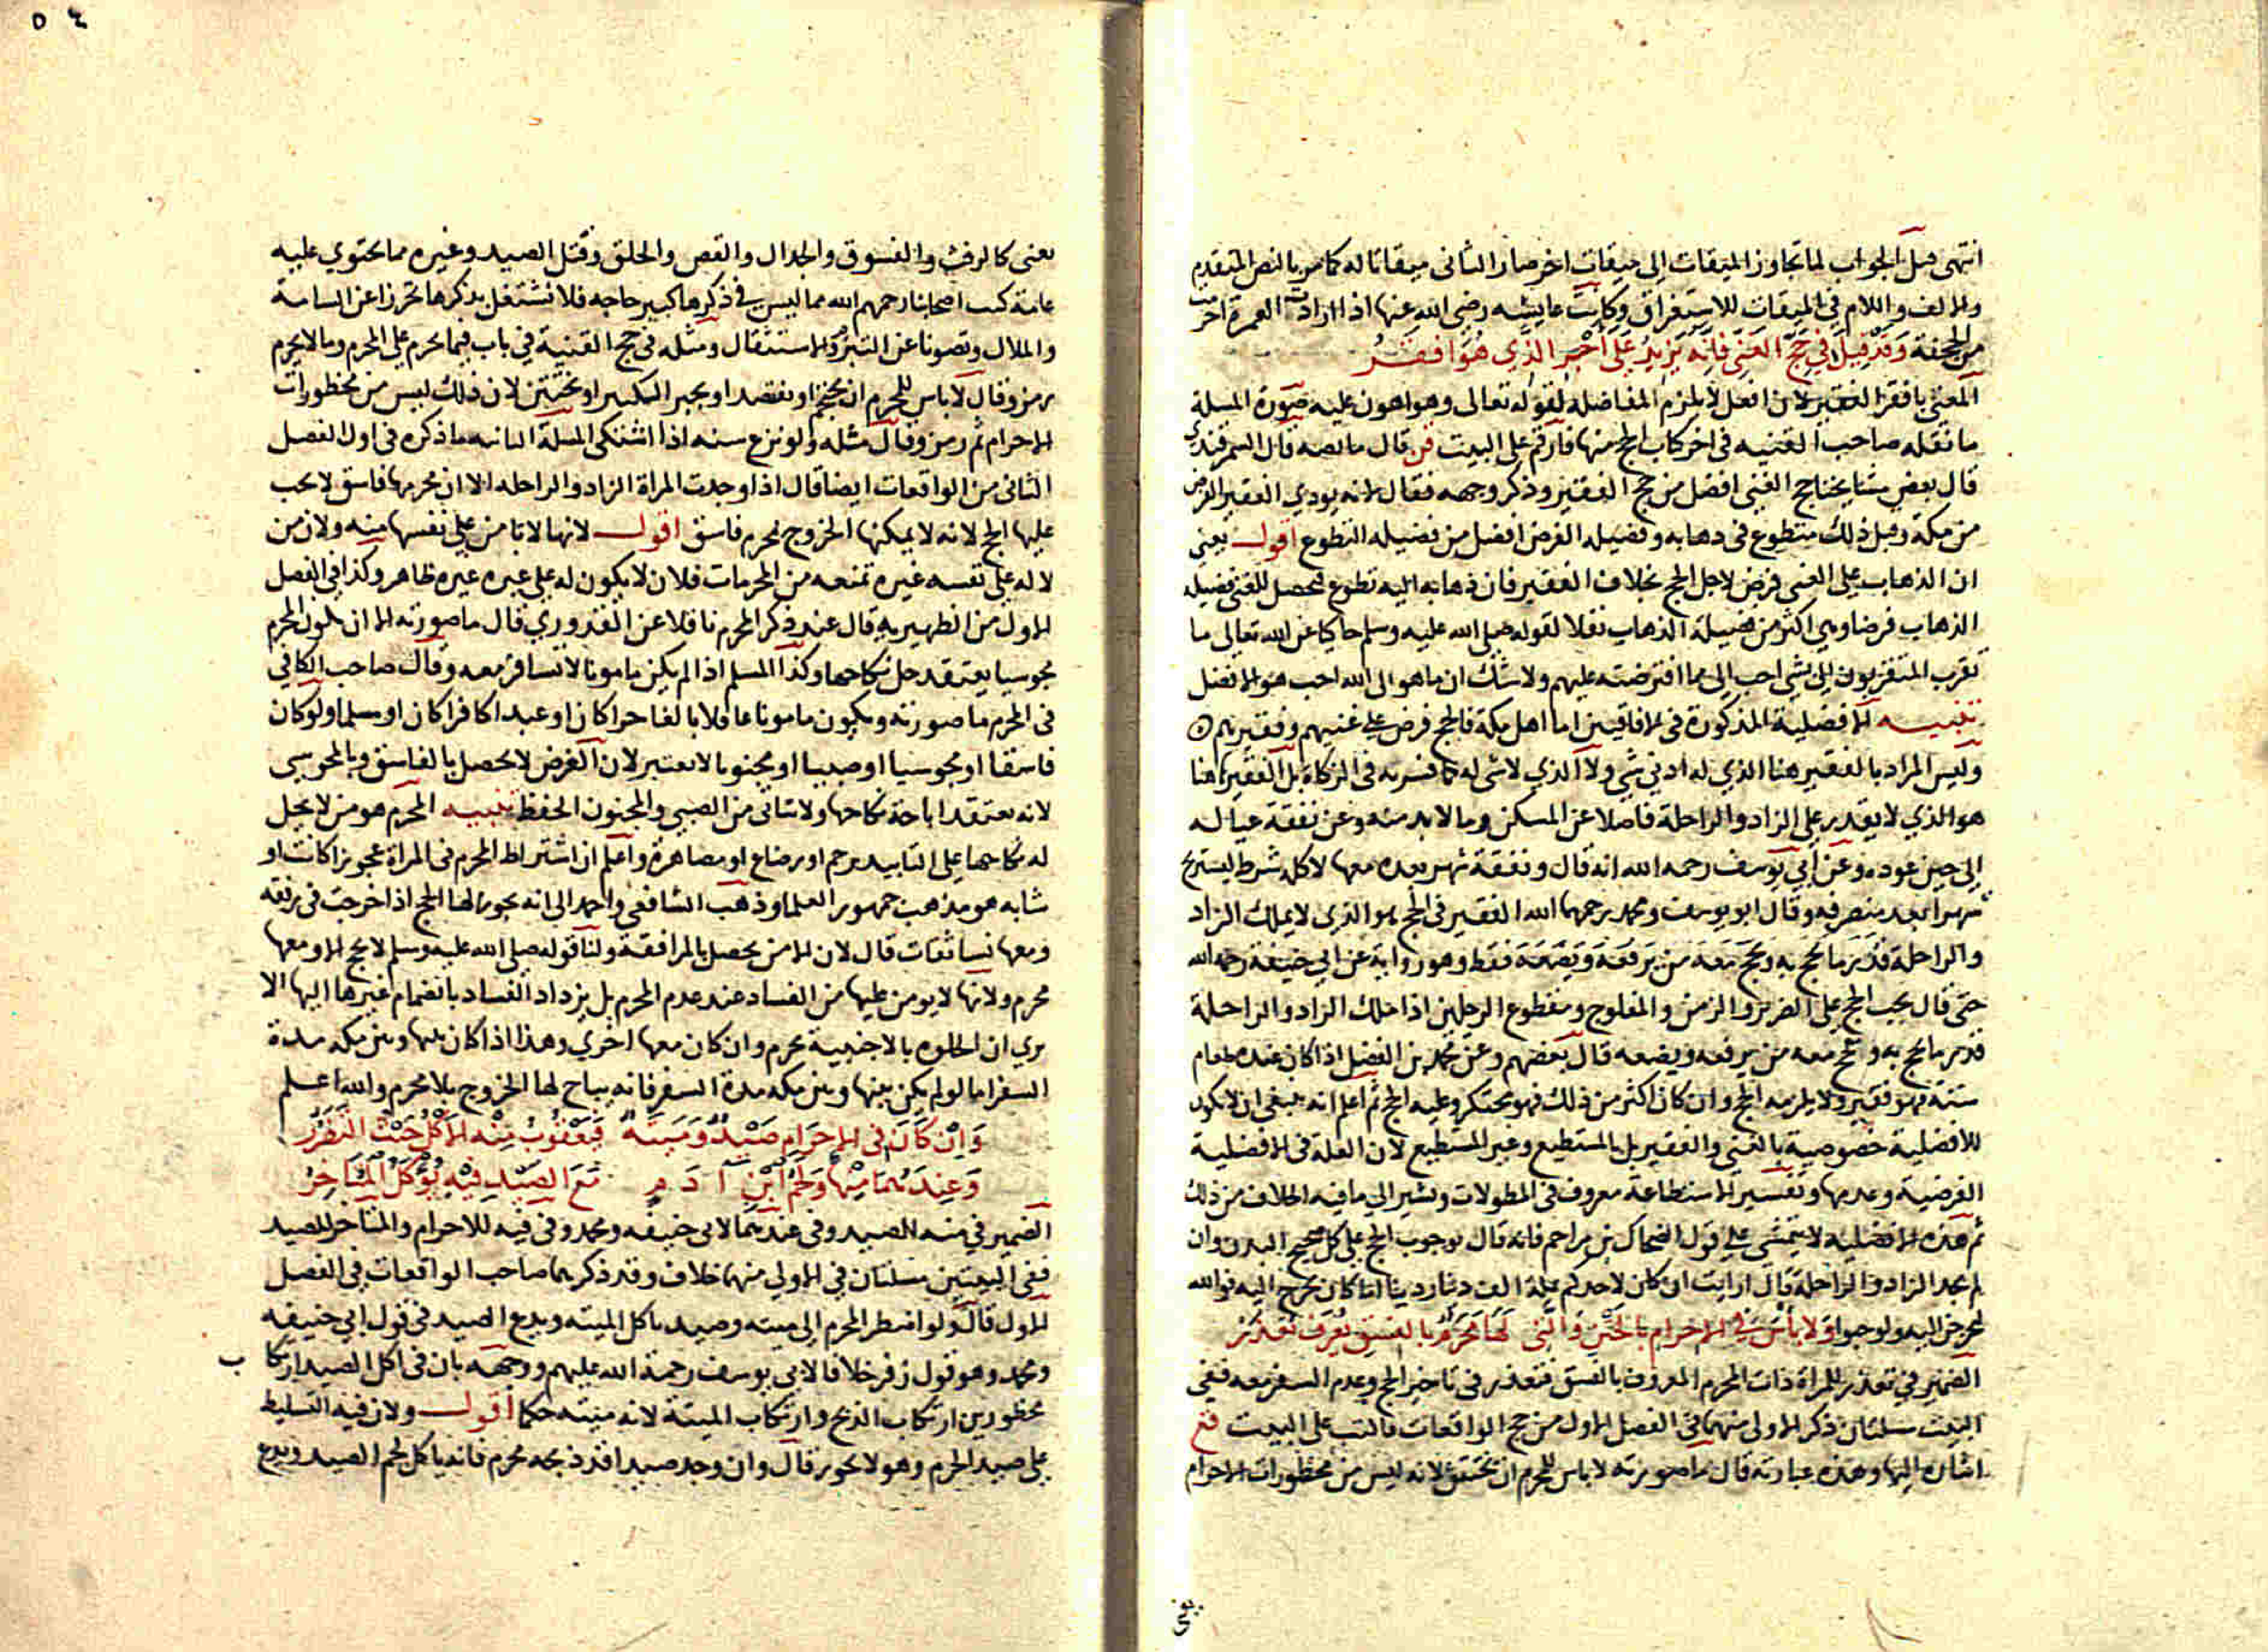 انتهى قيل الجواب لما تجاوز الميقات الى ميقات اخر صار الثاني ميقاتا له كما مر بالنص المتقدم
والالف واللام في الميقات للاستغراق وكانت عايشه رضي الله عنها اذا ارادت العمرة احرمت
من الجحفة وقد قيل في حج الغني فانه يزيد على اجر الذي هو افقر
المعني بافقر الفقير لان افعل لا يلزم المفاضلة لقوله تعالى وهو اهون عليه صورة المسلة
ما نقله صاحب القنيه في اخر كتاب الحج منها فارقم على البيت قن قال ما نصه قال السمرقندي
قال بعض مشايخنا حج الغني افضل من حج الفقير وذكر وجهه فقال لانه يودي الفقير الفرض
من مكة وقبل ذلك متطوع في ذهابه وفضيله الفرض افضل من فضيله التطوع اقول يعني
ان الذهاب على الغني فرض لاجل الحج بخلاف الفقير فان ذهابه اليه تطوع فيحصل للغني فضيله
الذهاب فرضا وهي اكثر من فضيلة الذهاب نفلا لقوله صلى الله عليه وسلم حاكيا عن الله تعالى ما
تقرب المتقربون الي بشي احب الي مما افترضته عليهم ولا شك ان ما هو الى الله احب هو الافضل
تنبيه الافضلية المذكورة في الافاقيين اما اهل مكة فالحج فرض على غنيهم وفقيرهم
وليس المراد بالفقير هنا الذي له ادنى شي ولا الذي لا شي له كما فسر به في الزكاة بل الفقير هنا
هو الذي لا يقدر على الزاد والراحلة فاضلا عن المسكن وما لا بد منه وعن نفقة عياله
الى حين عوده وعن ابي يوسف رحمه الله انه قال ونفقة شهر بعده معها لا كله شرط ليستريح
شهرا بعد منصرفه وقال ابو يوسف ومحمد رحمهما الله الفقير في الحج هو الذي لا يملك الزاد
والراحلة قدر ما يحج به ويحج معه من يرفعه ويضعه فقط وهو رواية عن ابي حنيفة رحمه الله
حتى قال يجب الحج على الضرير والزمن والمفلوج ومقطوع الرجلين اذا ملك الزاد والراحلة
قدر ما يحج به ويحج معه من يرفعه ويضعه قال بعضهم وعن محمد بن الفضل اذا كان عنده طعام
سنة فهو فقير ولا يلزمه الحج وان كان اكثر من ذلك فهو محتكر وعليه الحج ثم اعلم انه ينبغي ان لا يكون
للافضلية خصوصية بالغني والفقير بل بالمستطيع وغير المستطيع لان العلة في الافضلية
الفرضية وعدمها وتفسير الاستطاعة معروف في المطولات ونشير الى ما فيه الخلاف من ذلك
ثم هذه الافضلية لا يتمشى على قول الضحاك بن مزاحم فانه قال بوجوب الحج على كل صحيح البدن وان
لم يجد الزاد والراحلة قال ارايت ان كان لاحدكم بمكة الف دينار دينا اما كان يخرج اليه فوالله
ليخرجن اليه ولو حبوا ولا باس في الاحرام بالختن والتي لها محرم بالفسق يعرف تعذر
الضمير في تعذر للمراة ذات المحرم المعروف بالفسق فتعذر في تاخير الحج وعدم السفر معه ففي
البيت مسلتان ذكر الاولى منهما في الفصل الاول من حج الواقعات فالتب على البيت فع
اشارة اليها وهذه عبارته قال ما صورته لا باس للمحرم ان يختتن لانه ليس من محظورات الاحرام
يعني
يعني كالرفث والفسوق والجدال والقص والحلق وقتل الصيد وغيره مما يحتوي عليه
عامة كتب اصحابنا رحمهم الله مما ليس في ذكرها كبير حاجه فلا نشتغل بذكرها تحرزا عن السامة
والملال وتصونا عن التبرم والاستثقال ومثله في حج القنية في باب فيما يحرم على المحرم وما لا يحرم
رمز وقال لا باس للمحرم ان يحتجم او يفتصد او يجبر الكسر او يختتن لان ذلك ليس من محظورات
الاحرام ثم رمز وقال مثله ولو نزع سنه اذا اشتكى المسلة الثانيه ما ذكره في اول الفصل
الثاني من الواقعات ايضا قال اذا وجدت المراة الزاد والراحله الا ان محرمها فاسق لا يجب
عليها الحج لانه لا يمكنها الخروج بمحرم فاسق اقول لانها لا تامن على نفسها منه ولان من
لا له على نفسه غيره تمنعه من المحرمات فلان لا يكون له على غيره غيره ظاهر وكذا في الفصل
الاول من الظهيريه قال عند ذكر المحرم ناقلا عن القدوري قال ما صورته الا ان يكون المحرم
مجوسيا يعتقد حل نكاحها وكذا المسلم اذا لم يكن مامونا لا تسافر معه وقال صاحب الكافي
في المحرم ما صورته ويكون مامونا عاقلا بالغا حرا كان او عبدا كافرا كان او مسلما ولو كان
فاسقا او مجوسيا او صبيا او مجنونا لا يعتبر لان الغرض لا يحصل بالفاسق وبالمجوسي
لانه يعتقد اباحة نكاحها ولا يتاتى من الصبي والمجنون الحفظ تنبيه المحرم هو من لا يحل
له نكاحها على التابيد برحم او رضاع او مصاهرة واعلم ان اشتراط المحرم في المراة عجوزا كانت او
شابه هو مذهب جمهور العلما وذهب الشافعي واحمد الى انه يجوز لها الحج اذا خرجت في رفقه
ومعها نسا ثقات قال لان الامن يحصل بالمرافقة ولنا قوله صلى الله عليه وسلم لا تحج الا ومعها
محرم ولانها لا يومن عليها من الفساد عند عدم المحرم بل يزداد الفساد بانضمام غيرها اليها الا
يرى ان الخلوة بالاجنبية تحرم وان كان معها اخرى وهذا اذا كان بينها وبين مكه مدة
السفر اما لو لم يكن بينها وبين مكه مدة السفر فانه يباح لها الخروج بلا محرم والله اعلم
وان كان في الاحرام صيد وميتة فيعقوب منه الاكل حيث التضرر
وعندهما منها ولحم ابن ادم مع الصيد فيه يوكل المتاخر
الضمير في منه للصيد وفي عندهما لابي حنيفه ومحمد وفي فيه للاحرام والمتاخر للصيد
ففي البيتين مسلتان في الاولى منهما خلاف وقد ذكرهما صاحب الواقعات في الفصل
الاول قال ولو اضطر المحرم الى ميته وصيد ياكل الميته ويدع الصيد في قول ابي حنيفه
ومحمد وهو قول زفر خلافا لابي يوسف رحمة الله عليهم ووجهه بان في اكل الصيد ارتكاب
محظورين ارتكاب الذبح وارتكاب الميتة لانه ميته حكما اقول ولان فيه التسليط
على صيد الحرم وهو لا يجوز قال وان وجد صيدا قد ذبحه محرم فانه ياكل لحم الصيد ويدع